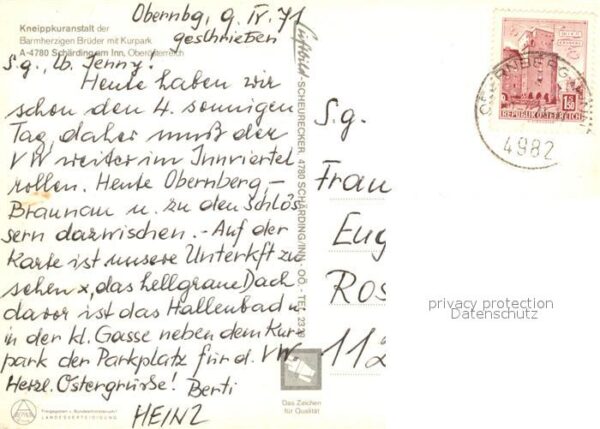 Kneippkuranstalt der
Barmherzigen Brüder mit Kurpark
A-4780 Schärding am Inn, Oberösterreich
Obernbg, 9. IV. 71
geschrieben
S.g., lb. Jenny!
Heute haben wir
schon den 4. sonnigen
Tag, daher muß der
VW weiter im Innviertel
rollen. Heute Obernberg, –
Braunau u. zu den Schlös-
sern dazwischen. – Auf der
Karte ist unsere Unterkft zu
sehen x, das hellgraue Dach
davor ist das Hallenbad u
in der kl. Gasse neben dem Kur-
park der Parkplatz für d. VW.
Herzl. Ostergrüsse! Berti
HEINZ
LANDESVERTEIDIGUNG
SCHEURECKER, 4780 SCHÄRDING/INN - OÖ. - TEL. 2333
Das Zeichen
für Qualität
REPUBLIK ÖSTERREICH
4982
S.g.
Frau
Eug
Ros
112
privacy protection
Datenschutz